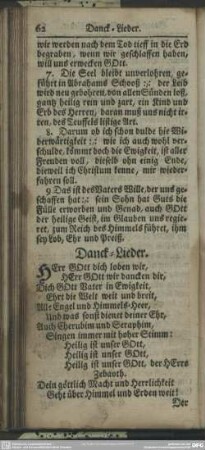 62 Danck-Lieder.
wir werden nach dem Tod tieff in die Erd
begraben, wenn wir geschlaffen haben,
will uns erwecken GOtt.
7. Die Seel bleibt unverlohren, ge-
führt in Abrahams Schooß :,: der Leib
wird neu gebohren, von allen Sünden loß,
gantz heilig rein und zart, ein Kind und
Erb des Herren, daran muß uns nicht ir-
ren, des Teuffels listige Art.
8. Darum ob ich schon dulde hie Wi-
derwärtigkeit :,: wie ich auch wohl ver-
schulde, kömmt doch die Ewigkeit, ist aller
Freuden voll, dieselb ohn einig Ende,
dieweil ich Christum kenne, mir wieder-
fahren soll.
9 Das ist des Vaters Wille, der uns ge-
schaffen hat :,: sein Sohn hat Guts die
Fülle erworben und Genad, auch GOtt
der heilige Geist, im Glauben uns regie-
ret, zum Reich des Himmels führet, ihm
sey Lob, Ehr und Preiß.
Danck-Lieder.
HErr GOtt dich loben wir,
HErr GOtt wir dancken dir,
Dich GOtt Vater in Ewigkeit,
Ehrt die Welt weit und breit,
All Engel und Himmels-Heer,
Und was sonst dienet deiner Ehr,
Auch Cherubim und Seraphim,
Singen immer mit hoher Stimm:
Heilig ist unser GOtt,
Heilig ist unser GOtt,
Heilig ist unser GOtt, der HErre
Zebaoth.
Dein göttlich Macht und Herrlichkeit
Geht über Himmel und Erden weit!
Der